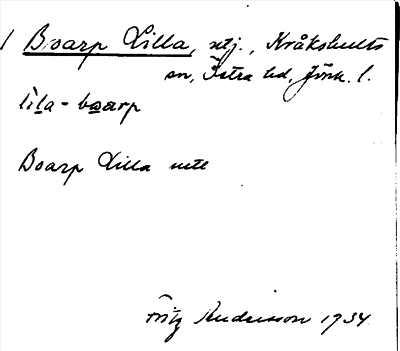 1 Boarp Lilla, utj., Kråkshults
sn, Östra hd, Jönk. l.
lìla-bo̲a̲rp
Boarp Lilla
Fritz Andersson 1934